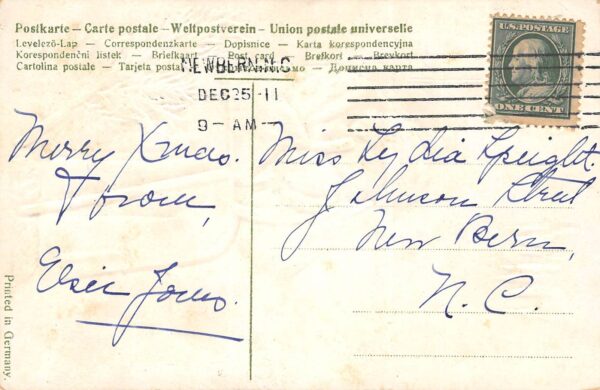 Postkarte – Carte postale – Weltpostverein – Union postale universelle
Levelező-Lap — Correspondenzkarte — Dopisnice — Karta korespondencyjna
Korespondenční lístek — Briefkaart — Post card — Brefkort — Brevkort
Cartolina postale — Tarjeta postal — Дописна карта
NEWBERN, N.C.
DEC 25 11
9 – AM
U.S. POSTAGE
ONE CENT
Merry Xmas.
From,
Elsie Jones.
Miss Lydia Speight.
Johnson Street
New Bern,
N. C.
Printed in Germany.